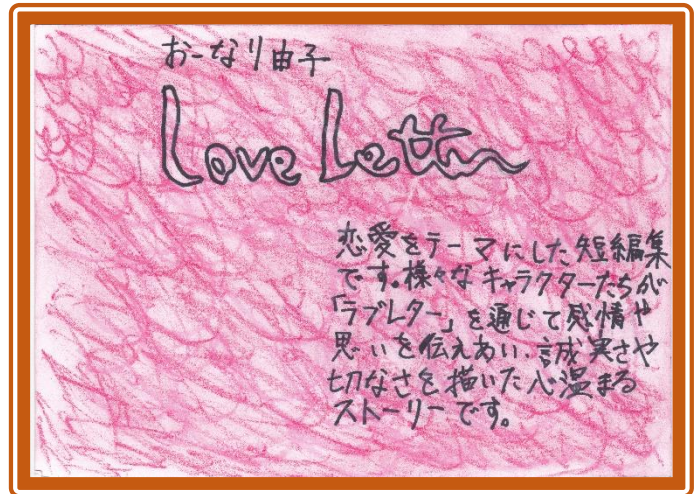 おーなり由子
Love Letter
恋愛をテーマにした短編集
です。様々なキャラクターたちが
「ラブレター」を通じて感情や
思いを伝えあい、誠実さや
切なさを描いた心温まる
ストーリーです。